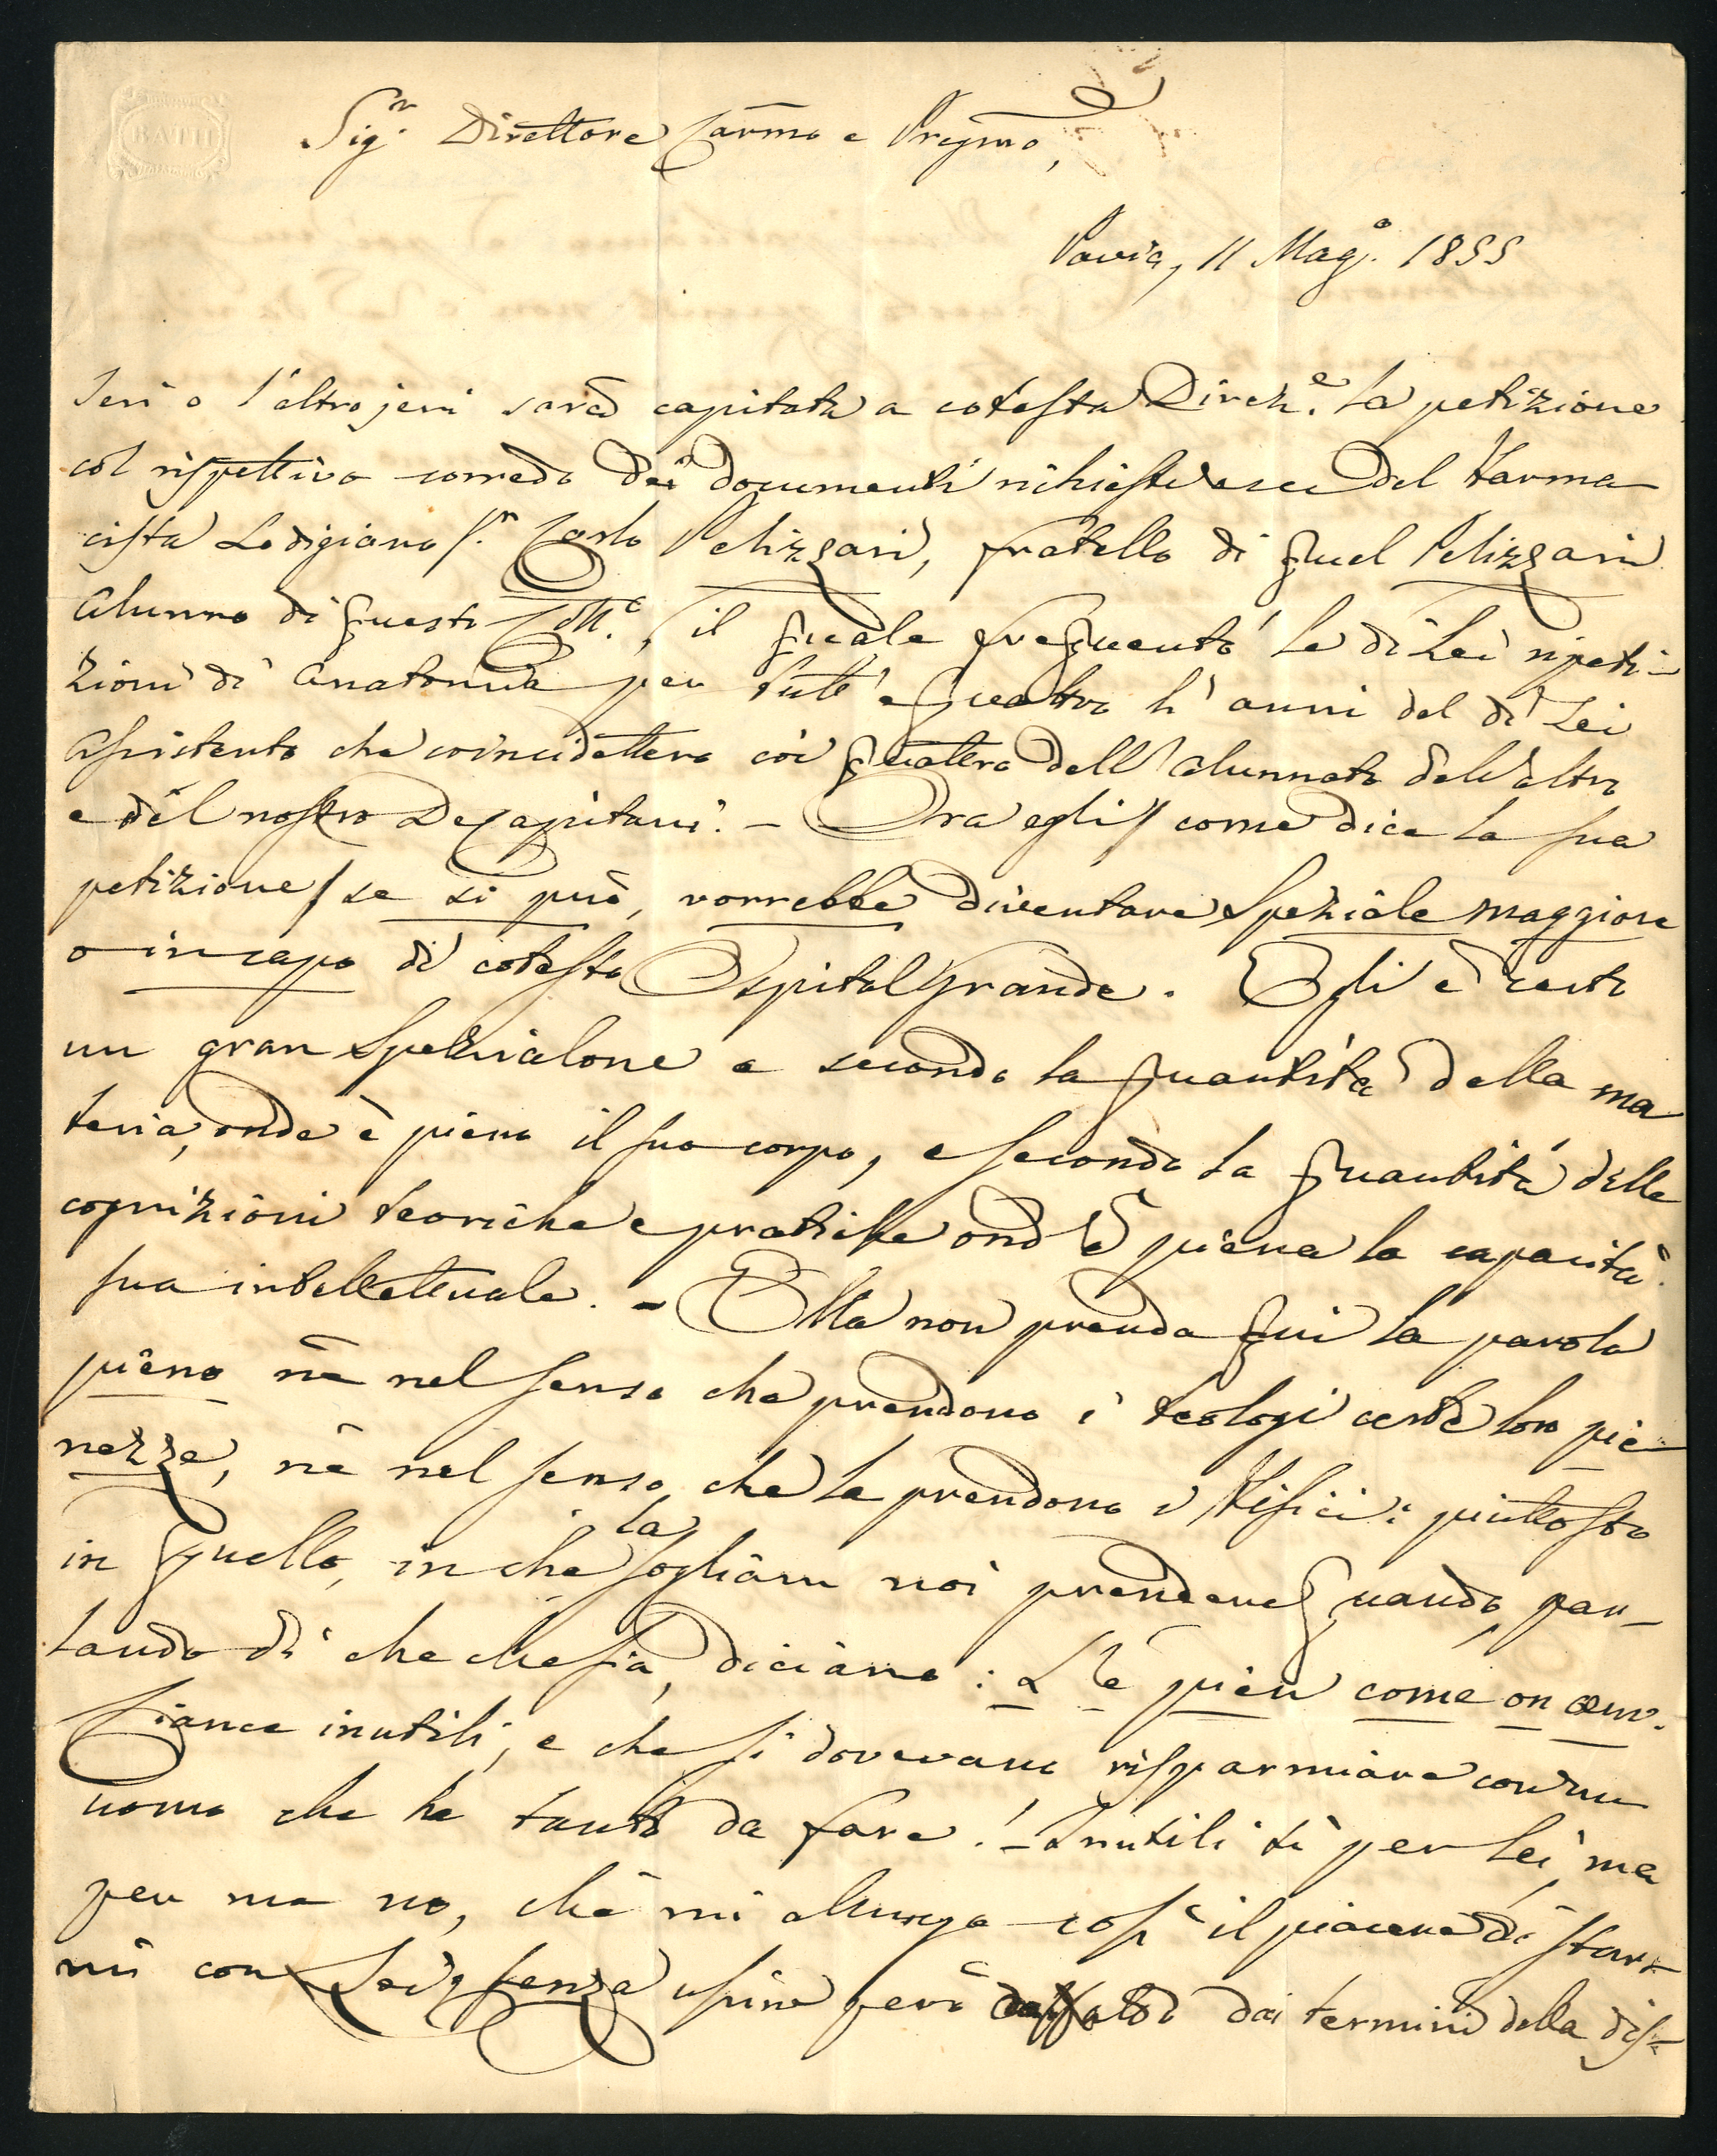 BATH
Sig.r Direttore Car̄mo e Pregmo,
Pavia, 11 Mag.o 1855
Jeri o l'altrojeri sarà capitata a cotesta Direz.e la petizione
col rispettivo corredo dei documenti richiesti ecc del Farma-
cista Lodigiano S.r Carlo Pelizzari, fratello di quel Pelizzari
Alunno di questo Coll.o, il quale frequentò le di Lei ripeti-
zioni di Anatomia per tutt' e quattro li anni del di Lei
Assistentato che coincidettero coi quattro dell'Alunnato dell'altro
e del nostro DeCapitani. - Ora egli / come dice la sua
petizione / se si può, vorrebbe diventare Speziale maggiore
o in capo di cotesto Ospital Grande. Egli è certo
un gran Spezialone e secondo la quantità della ma
teria, onde è pieno il suo corpo, e secondo la quantità delle
cognizioni teoriche e pratiche ond'è piena la capacità
sua intellettuale. - Ella non prenda qui la parola
pieno nè nel senso che prendono i teologi certe loro pie-
nezze, nè nel senso, che la prendono i Tisici: piuttosto
in quello, in che la sogliam noi prendere quando, par-
lando di che che sia, diciamo: L'è pien come on oeuv.
Ciance inutili, e che si dovevano risparmiare con un
uomo che ha tanto da fare! - Inutili sì per Lei, ma
per me no, chè mi allunga così il piacere di star-
mi con Lei, senza uscire però dai termini della dis-